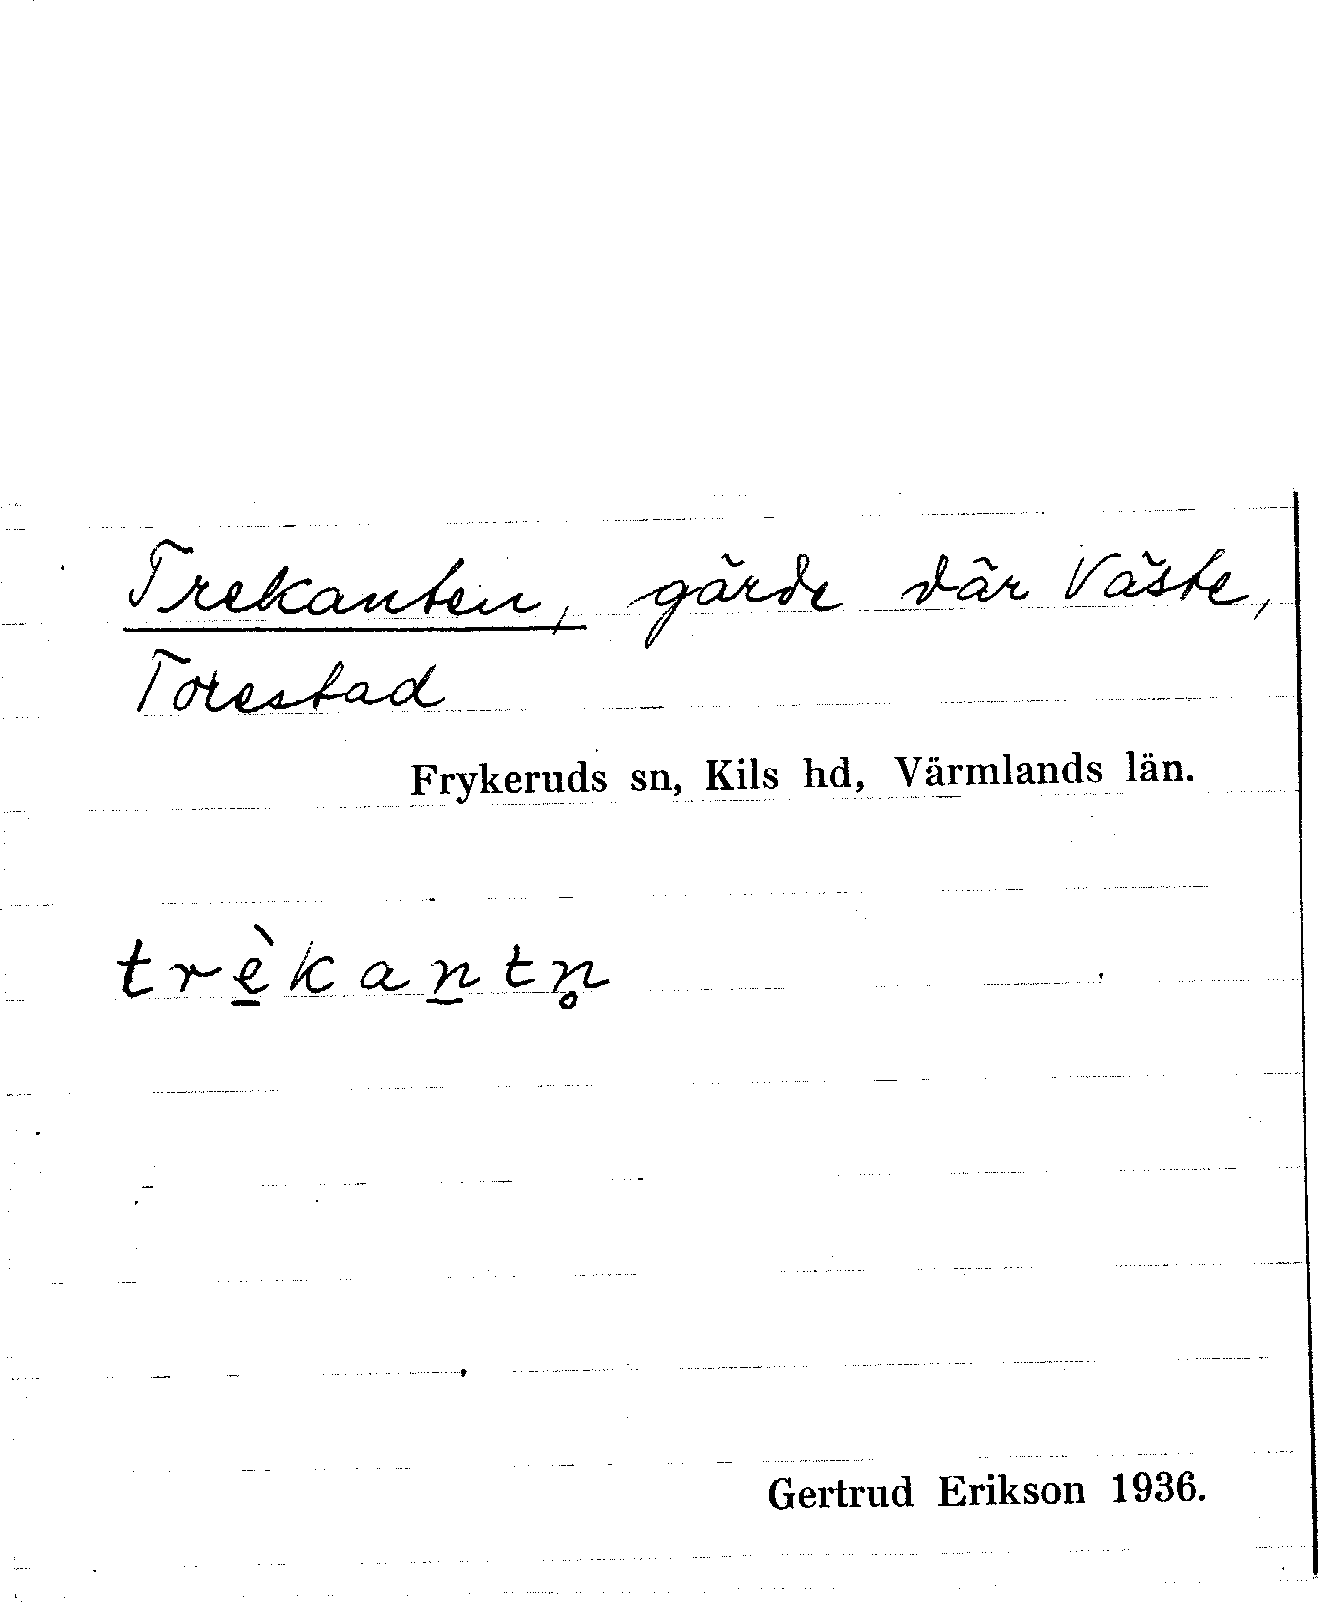 Trekanten, gärde där Väste,
Torestad
Frykeruds sn, Kils hd, Värmlands län.
trè̱kaṉtn̥
Gertrud Erikson 1936.